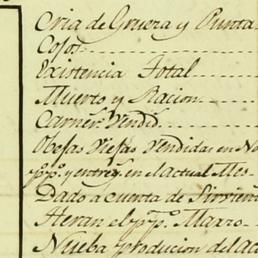 Cria de Gruera y Punta
Cojos
Existencia Total
Muerto y Racion
Carner. Vendid.
Obejas Viejas Vendidas en No
y entreg. en el actual Mes
Dado a cuenta de Sirvien
Heran el pp. Marzo
Nueba produccion del ac